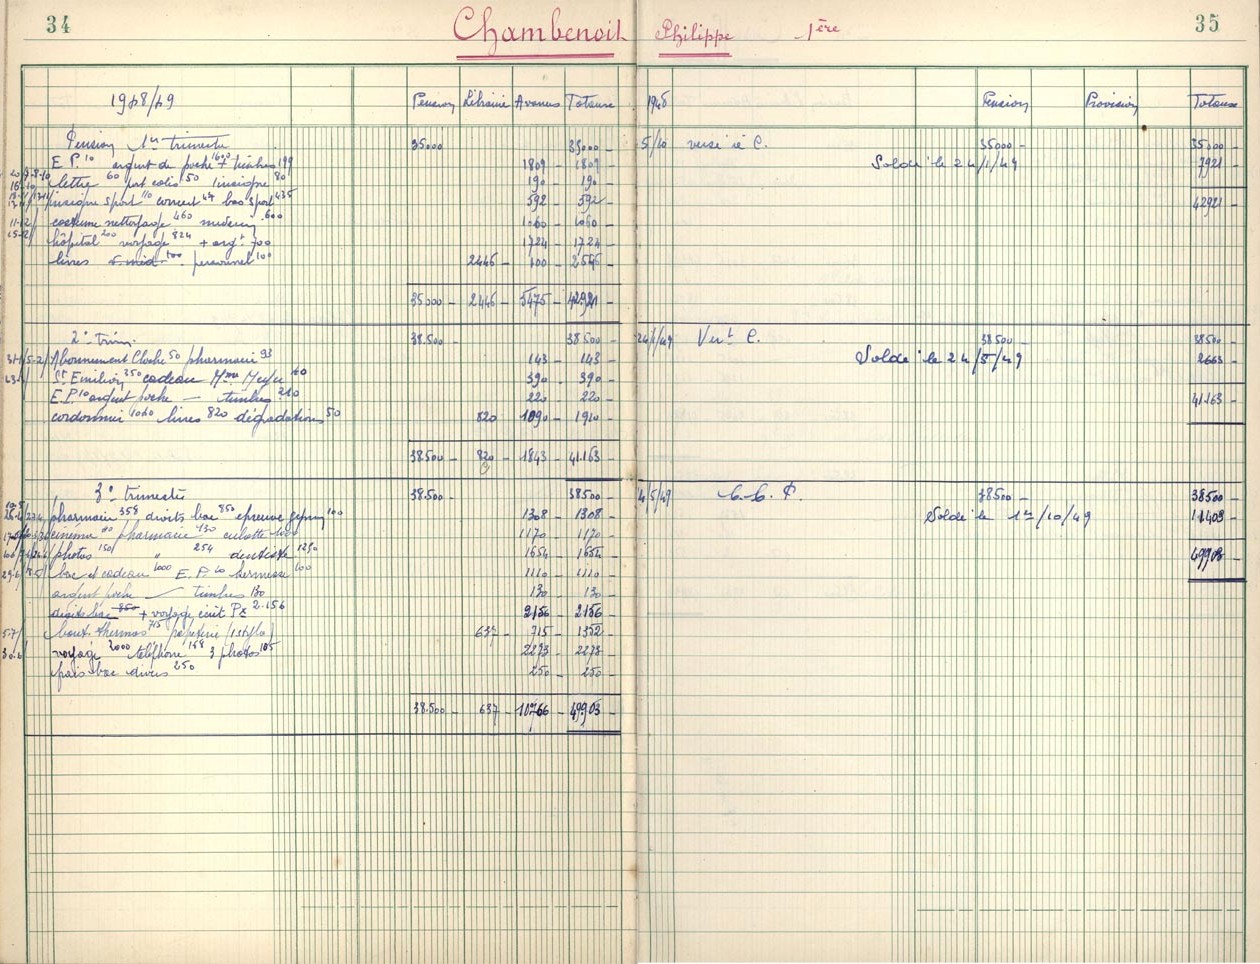 34
Chambenoit Philippe 1ère
35
1948/49 Pension Librairie Avances Totaux
Pension 1er trimestre 35000 35000 -
E.P. 10 argent de poche 1600 timbres 199 1809 - 1809 -
lettre 60 port colis 50 insigne 80 190 - 190 -
insigne sport 110 concert 47 bas sport 435 592 - 592 -
costume nettoyage 460 médecin 600 1060 - 1060 -
hôpital 200 voyage 824 + argt 700 1724 - 1724 -
livres personnel 100 2446 - 100 - 2546 -
35000 - 2446 - 5475 - 42921 -
2e trim. 38.500 38500 -
Abonnement Cloche 50 pharmacie 93 143 - 143 -
St Emilion 350 cadeau Mme 40 390 - 390 -
E.P. 10 argent poche — timbres 210 220 - 220 -
cordonnier 1040 livres 820 dégradations 50 820 1090 - 1910 -
38.500 - 820 - 1843 - 41.163 -
3e trimestre 38.500 38500 -
pharmacie 358 droits bac 850 épreuve gym 100 1308 - 1308 -
cinema 40 pharmacie 130 culotte 1000 1170 - 1170 -
photos 150 " 254 dentiste 1250 1654 - 1654 -
bac et cadeau 1000 E.P. 10 kermesse 100 1110 - 1110 -
argent poche — timbres 130 130 - 130 -
droits bac 850 + voyage écrit Px 2.156 2156 - 2156 -
bout. thermos 715 papeterie (1 stylo) 637 - 715 - 1352 -
voyage 2000 téléphone 168 3 photos 105 2273 - 2273 -
frais bac divers 250 250 - 250 -
38.500 - 637 - 10766 - 49903 -
1948 Pension Provision Totaux
5/10 versé à C. 35000 - 35000 -
Soldé le 24/1/49 7921 -
42921 -
24/1/49 Vert C. 38500 - 38500 -
Soldé le 24/5/49 2663 -
41163 -
4/5/49 C.C.P. 38500 - 38500 -
Soldé le 1er/10/49 11403 -
49903 -